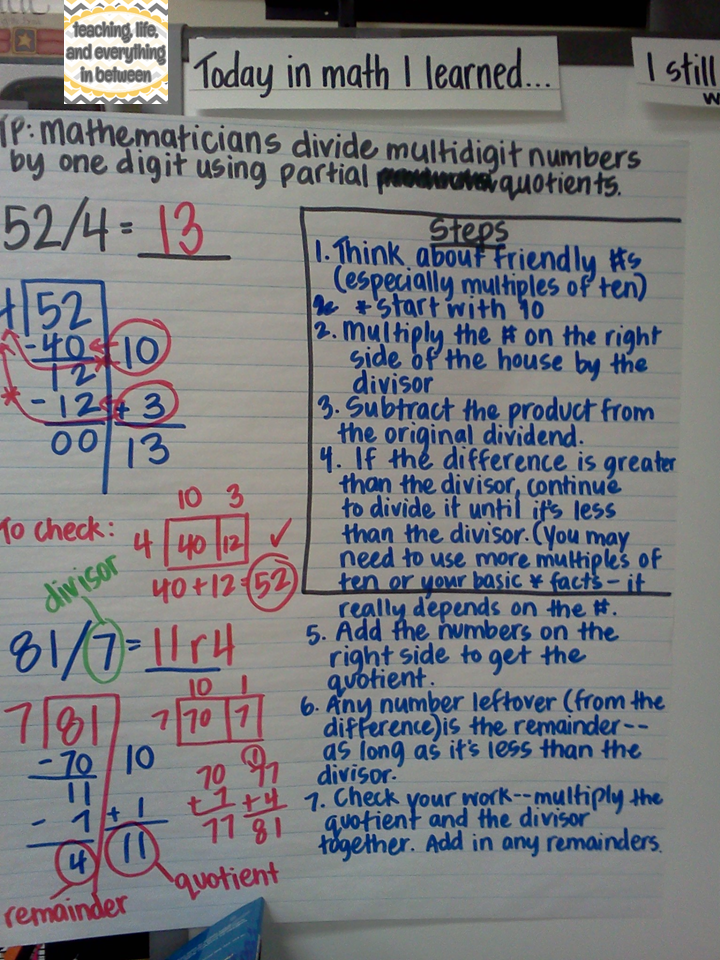 teaching, life,
and everything
in between
Today in math I learned...
I still
w
TP: Mathematicians divide multidigit numbers
by one digit using partial quotients.
52/4 = 13
4 52
-40 10
12
-12 + 3
00 13
To check:
10 3
4 40 12 ✓
40+12=52
divisor
81/7 = 11 r 4
10 1
7 70 7
7 81
-70 10
11
- 7 + 1
4 11
70
+ 7
77
1
77
+ 4
81
remainder
quotient
Steps
1. Think about friendly #s
(especially multiples of ten)
* start with 10
2. Multiply the # on the right
side of the house by the
divisor
3. Subtract the product from
the original dividend.
4. If the difference is greater
than the divisor, continue
to divide it until it's less
than the divisor. (You may
need to use more multiples of
ten or your basic * facts - it
really depends on the #.
5. Add the numbers on the
right side to get the
quotient.
6. Any number leftover (from the
difference) is the remainder--
as long as it's less than the
divisor.
7. Check your work--multiply the
quotient and the divisor
together. Add in any remainders.